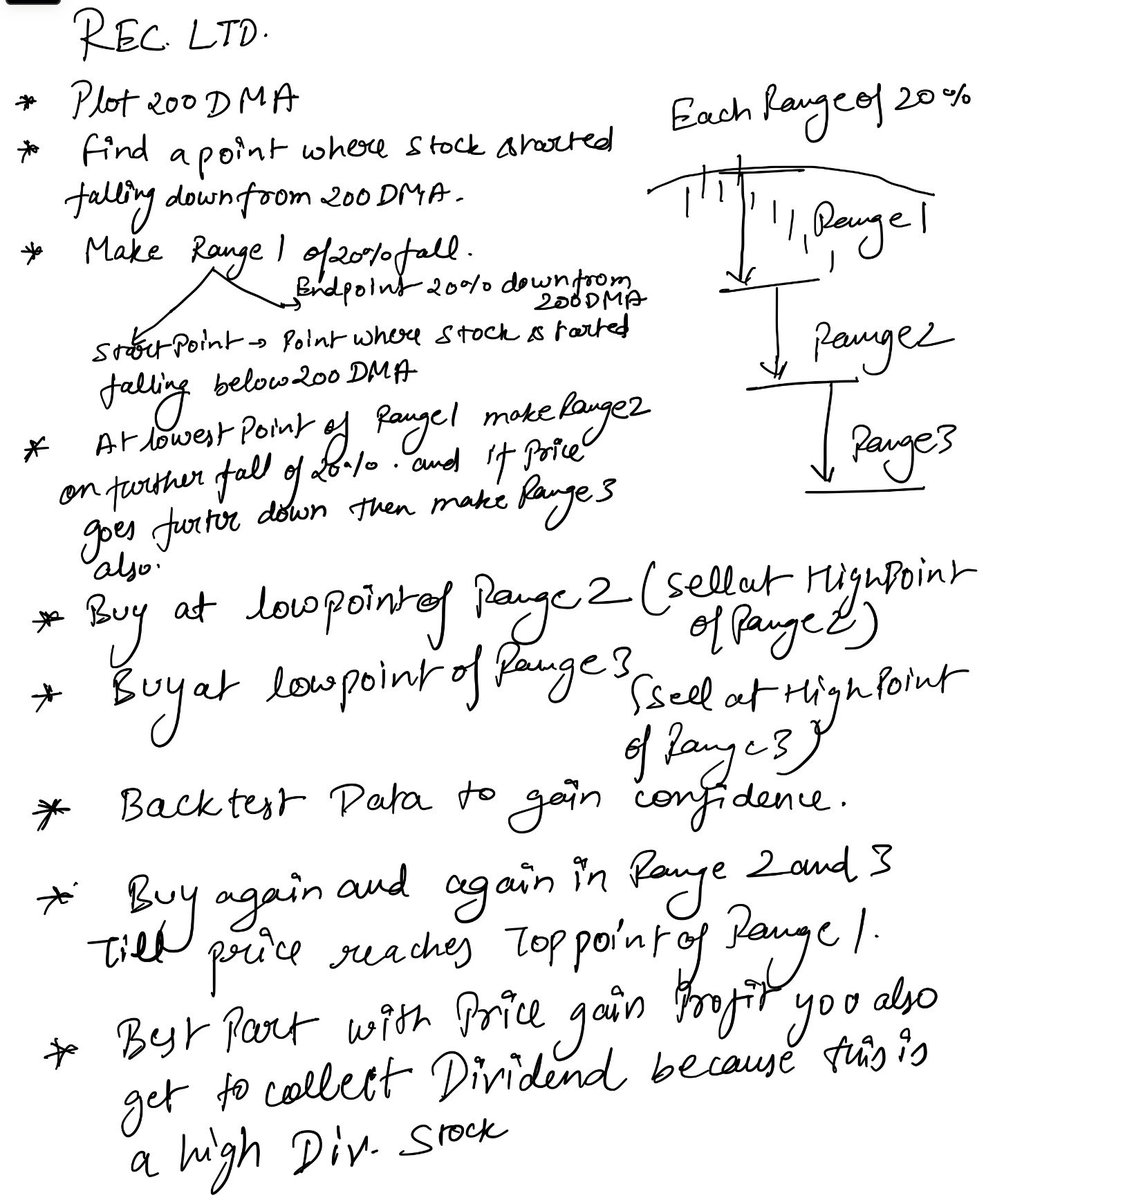 REC. LTD.
* Plot 200 DMA
* find a point where stock started
falling down from 200 DMA.
* Make Range 1 of 20% fall.
Endpoint 20% down from
200 DMA
Start Point → Point where stock started
falling below 200 DMA
* At lowest Point of Range1 make Range2
on further fall of 20%. and If Price
goes furter down then make Range 3
also.
* Buy at low point of Range 2 (sell at High Point
of Range 2)
* Buy at low point of Range 3
(sell at High Point
of Range 3)
* Backtest Data to gain confidence.
* Buy again and again in Range 2 and 3
Till price reaches Top point of Range 1.
* Best Part with Price gain Profit you also
get to collect Dividend because this is
a high Div. Stock
Each Range of 20%
Range 1
Range 2
Range 3